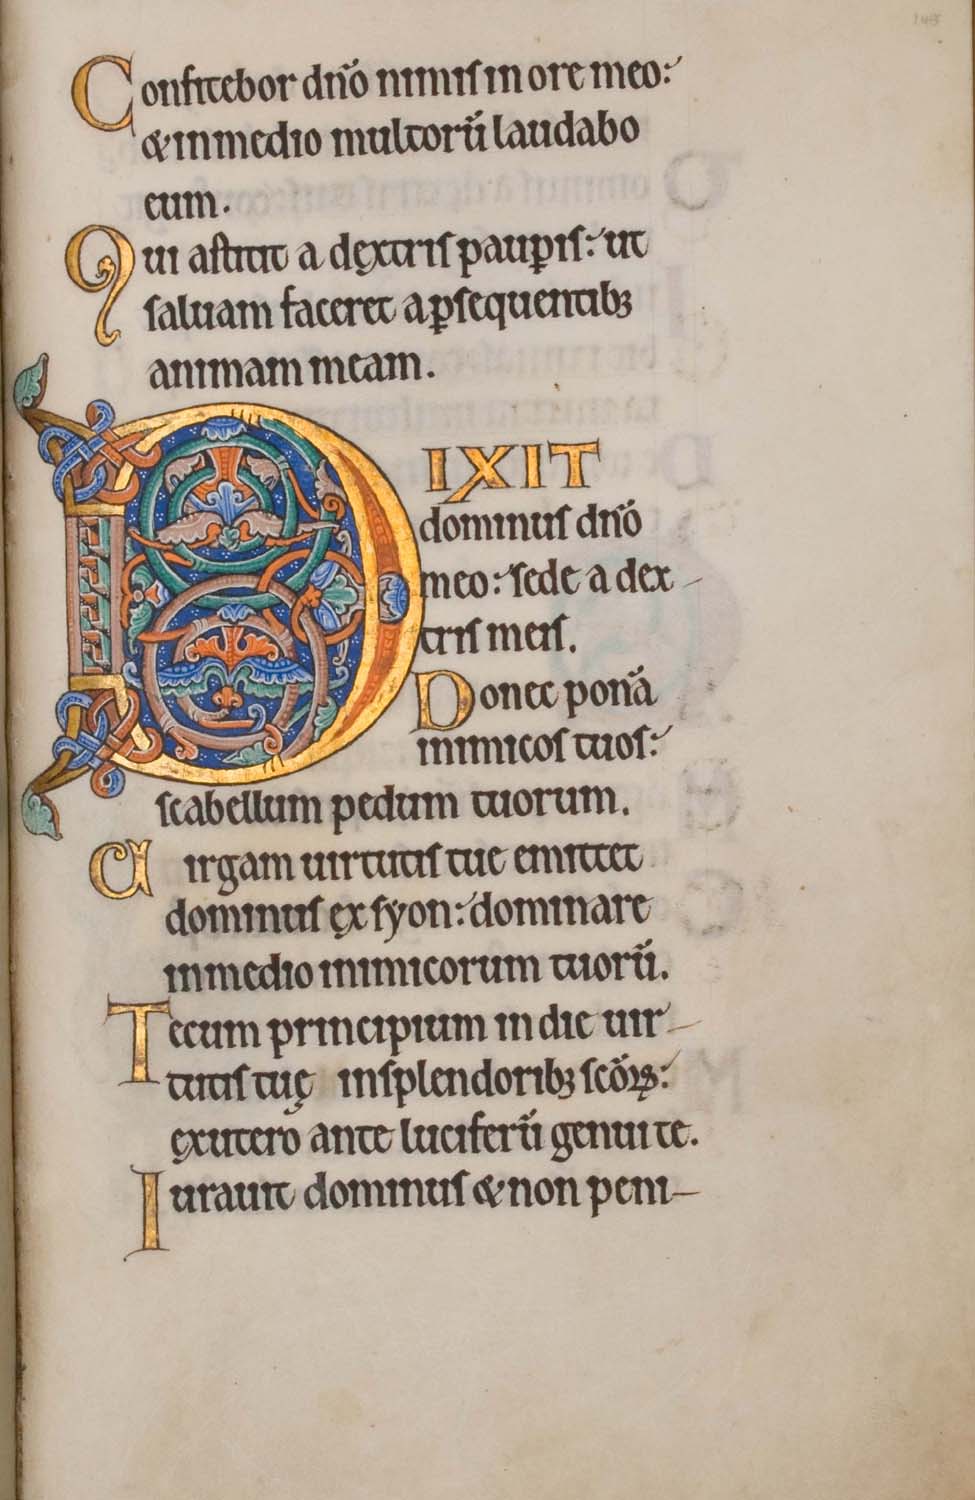 Confitebor dño nimis in ore meo:
& in medio multorũ laudabo
eum.
Qui astitit a dextris paup̱is: ut
saluam faceret a p̱sequentibꝫ
animam meam.
DIXIT
dominus dño
meo: sede a dex
tris meis.
Donec ponã
inimicos tuos:
scabellum pedum tuorum.
Uirgam uirtutis tue emittet
dominus ex syon: dominare
in medio inimicorum tuorũ.
Tecum principium in die uir-
tutis tuę in splendoribꝫ scõꝝ:
ex uterõ ante luciferũ genui te.
Iurauit dominus & non peni-